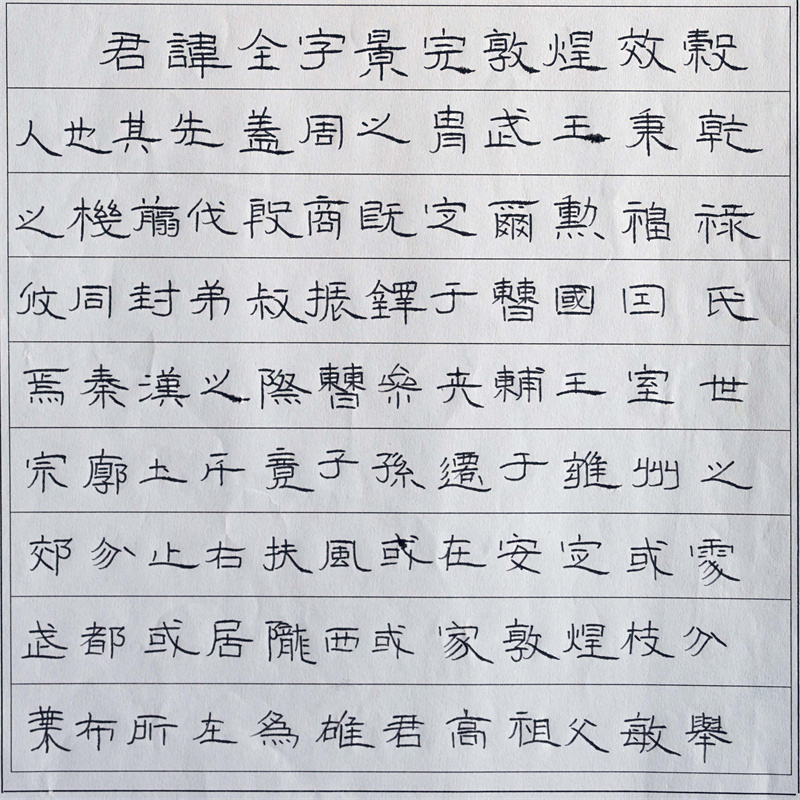 君諱全字景完敦煌效穀
人也其先蓋周之胄武王秉乾
之機翦伐殷商既定爾勳福祿
攸同封弟叔振鐸于曹國因氏
焉秦漢之際曹參夾輔王室世
宗廓土斥竟子孫遷于雍州之
郊分止右扶風或在安定或處
武都或居隴西或家敦煌枝分
葉布所在為雄君高祖父敏舉